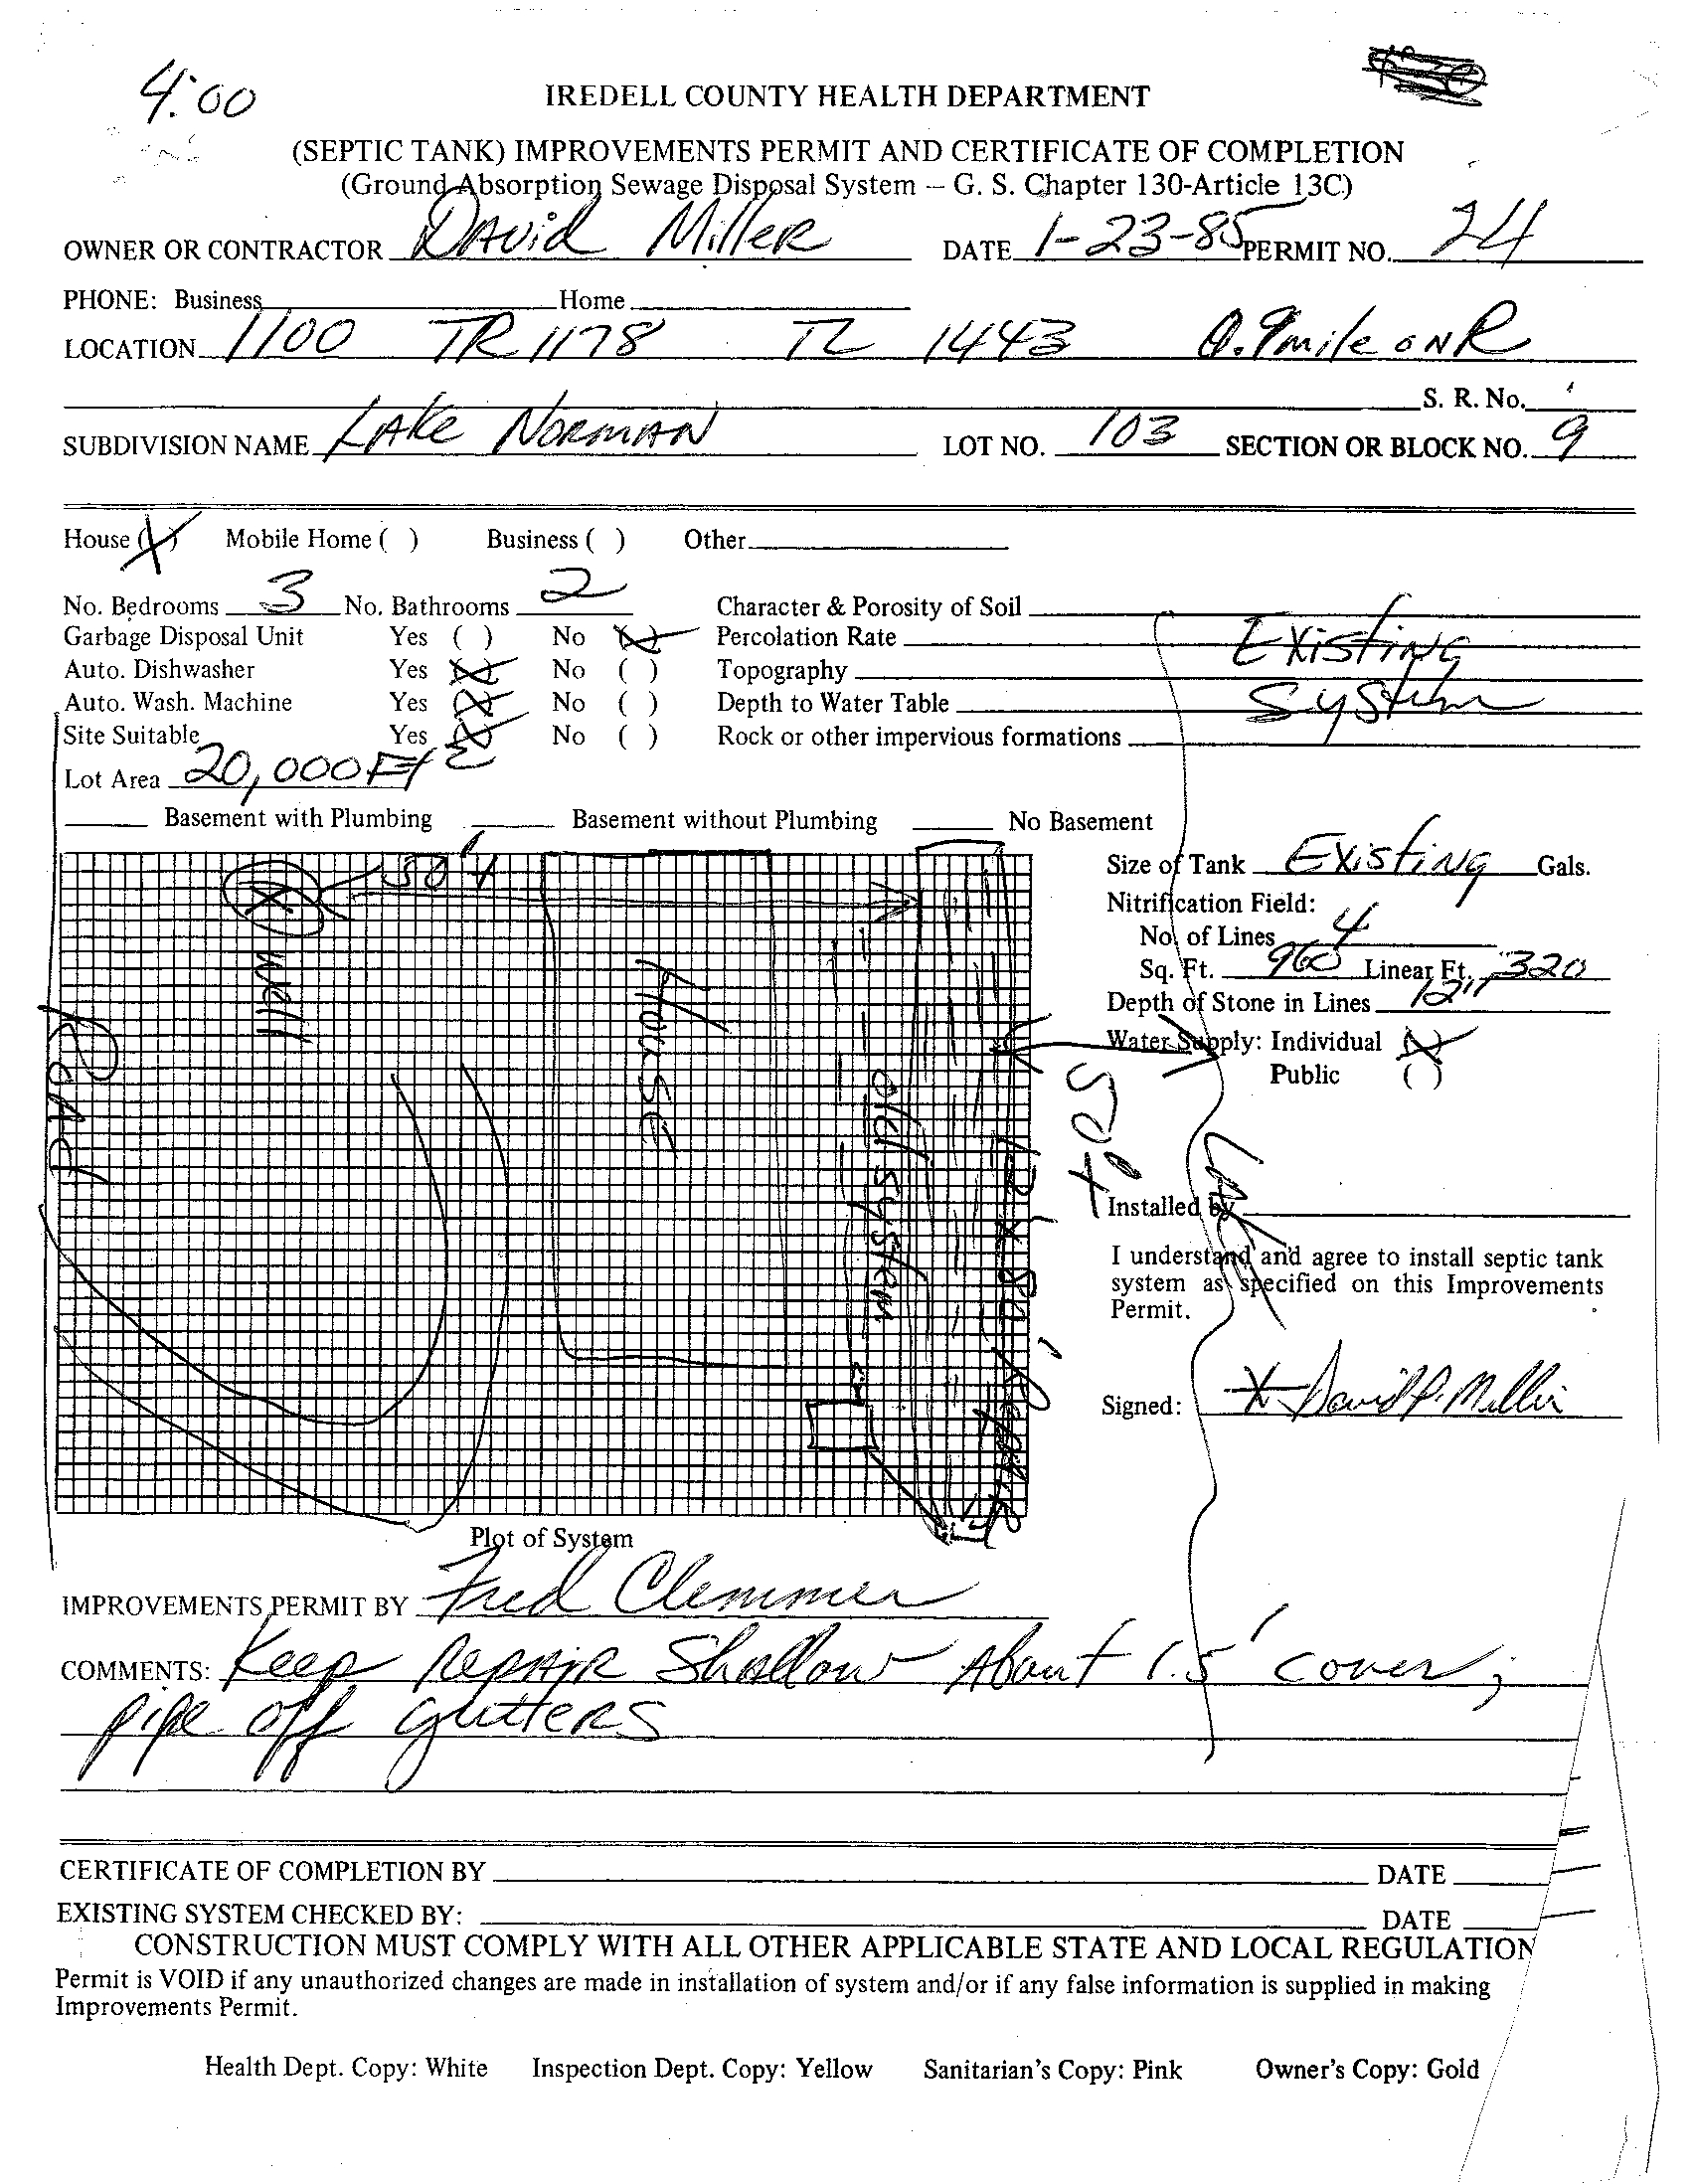 4:00
IREDELL COUNTY HEALTH DEPARTMENT
(SEPTIC TANK) IMPROVEMENTS PERMIT AND CERTIFICATE OF COMPLETION
(Ground Absorption Sewage Disposal System – G. S. Chapter 130-Article 13C)
OWNER OR CONTRACTOR David Miller DATE 1-23-85 PERMIT NO. 24
PHONE: Business Home
LOCATION 1100 TR 1178 TL 1443 0.9 mile on R
S. R. No.
SUBDIVISION NAME Lake Norman LOT NO. 103 SECTION OR BLOCK NO. 9
House (X) Mobile Home ( ) Business ( ) Other
No. Bedrooms 3 No. Bathrooms 2 Character & Porosity of Soil
Garbage Disposal Unit Yes ( ) No (X) Percolation Rate Existing
Auto. Dishwasher Yes (X) No ( ) Topography
Auto. Wash. Machine Yes (X) No ( ) Depth to Water Table System
Site Suitable Yes (X) No ( ) Rock or other impervious formations
Lot Area 20,000 Ft 2
Basement with Plumbing Basement without Plumbing No Basement
50'+
Well
House
old system
Road
50'+
Lake
Size of Tank Existing Gals.
Nitrification Field:
No. of Lines 4
Sq. Ft. 960 Linear Ft. 320
Depth of Stone in Lines 12"
Water Supply: Individual (X)
Public ( )
Installed by
I understand and agree to install septic tank
system as specified on this Improvements
Permit.
Signed: X David P. Miller
Plot of System
IMPROVEMENTS PERMIT BY Fred Clemmer
COMMENTS: Keep Repair Shallow About 1.5' cover;
pipe off gutters
CERTIFICATE OF COMPLETION BY DATE
EXISTING SYSTEM CHECKED BY: DATE
CONSTRUCTION MUST COMPLY WITH ALL OTHER APPLICABLE STATE AND LOCAL REGULATION
Permit is VOID if any unauthorized changes are made in installation of system and/or if any false information is supplied in making
Improvements Permit.
Health Dept. Copy: White Inspection Dept. Copy: Yellow Sanitarian's Copy: Pink Owner's Copy: Gold